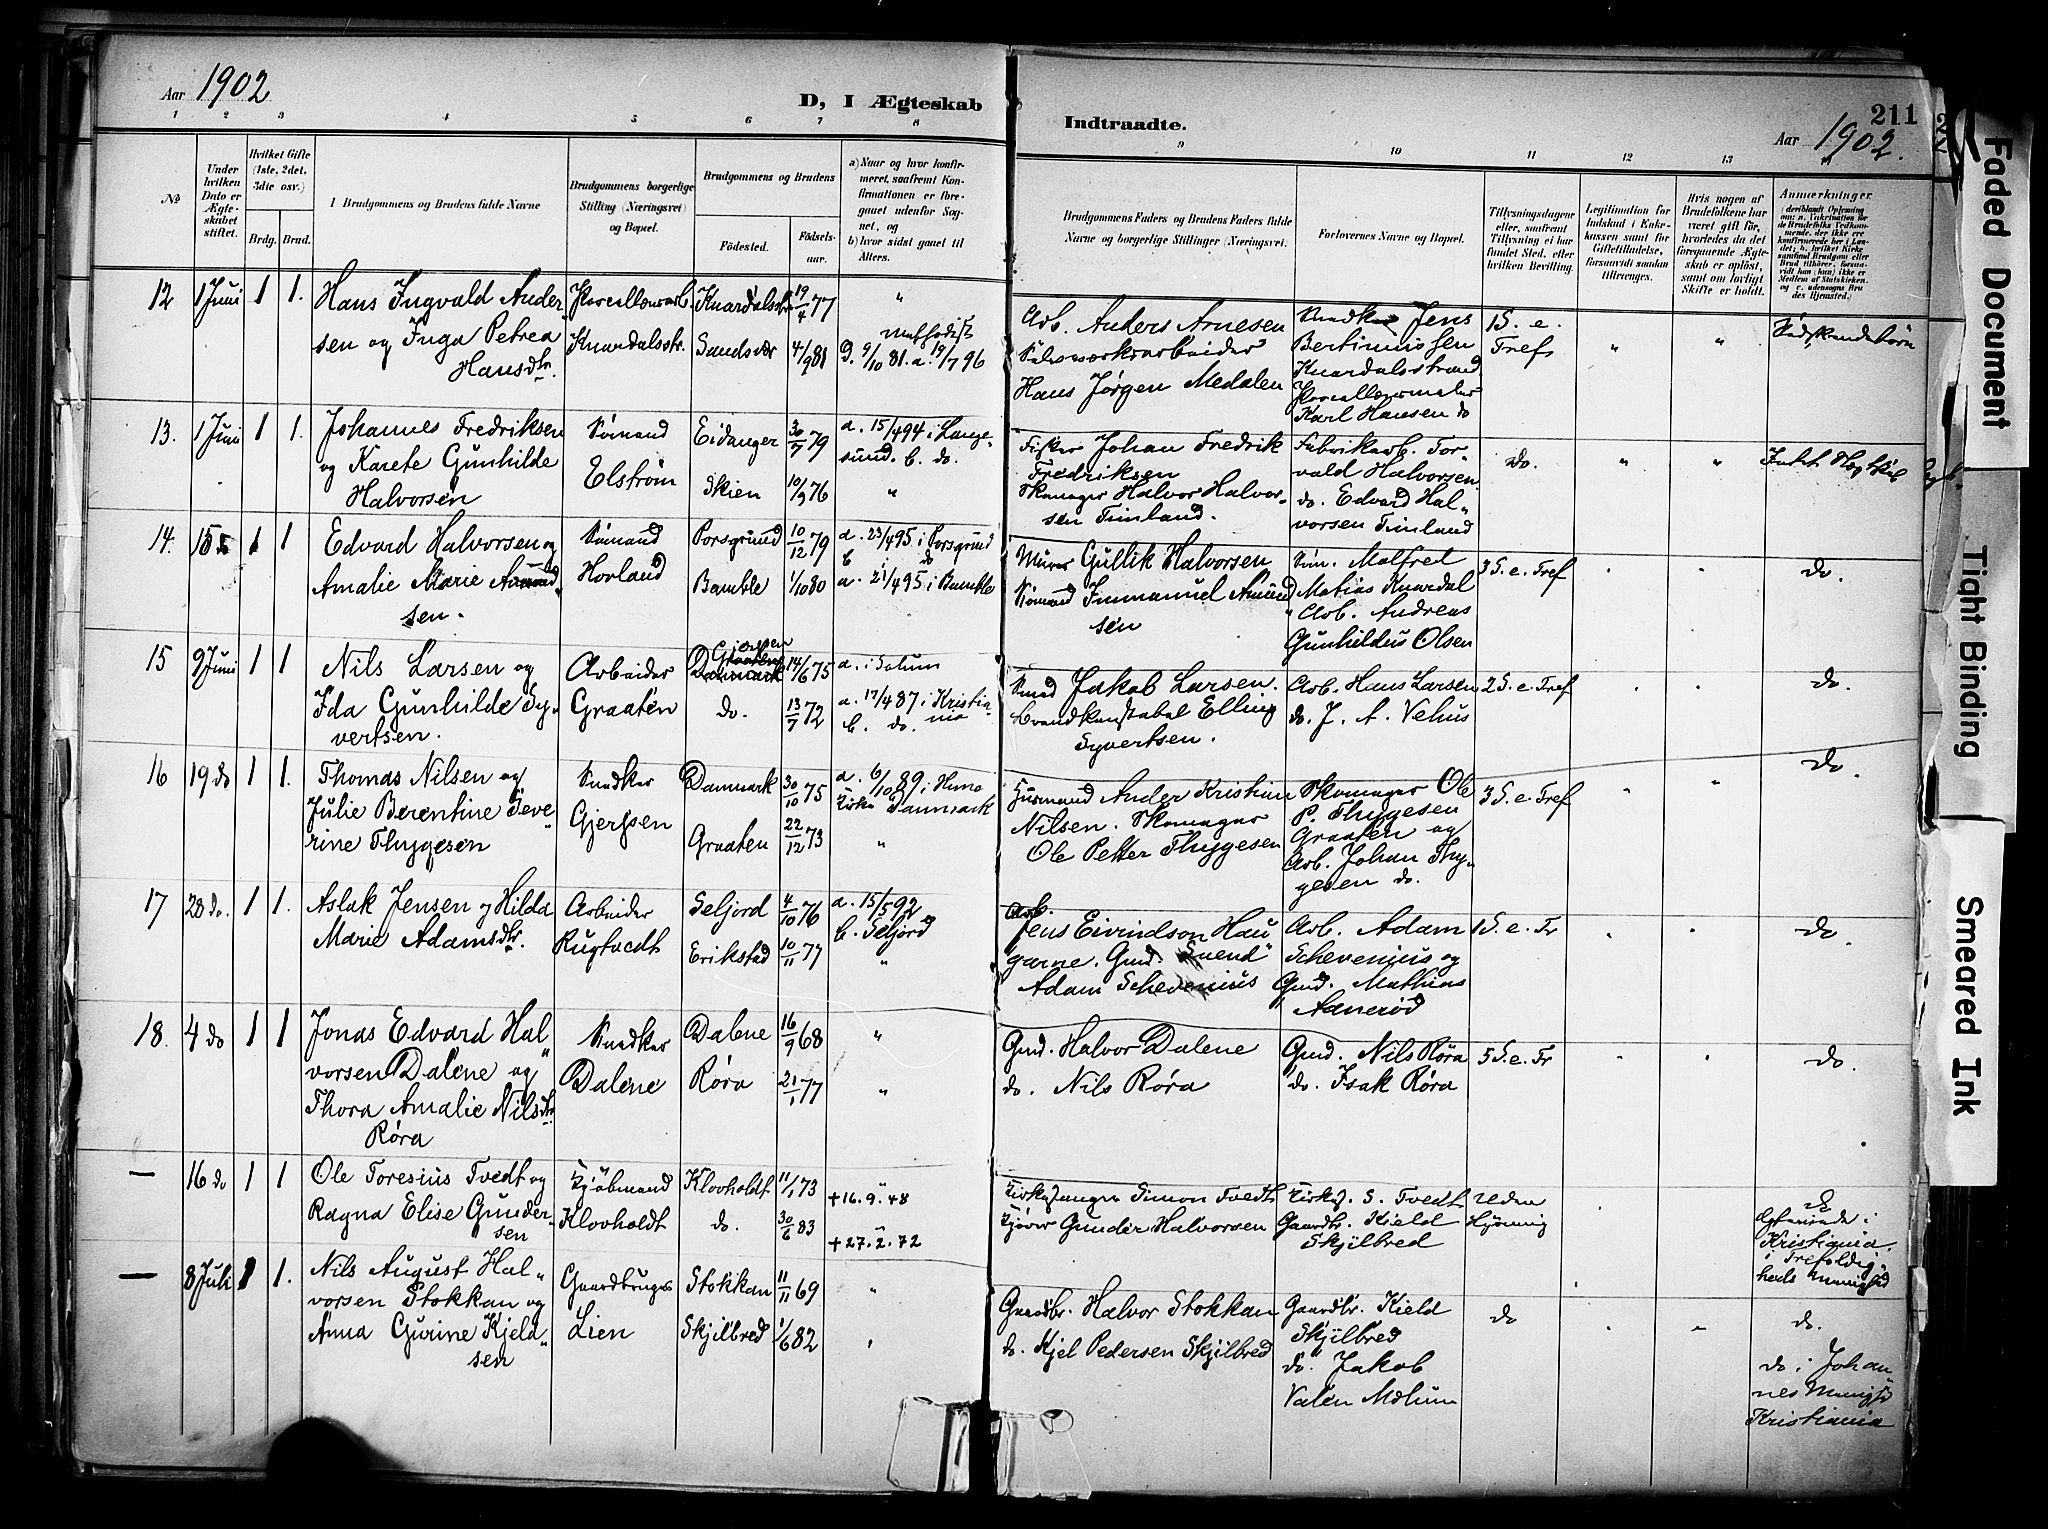 Aar 1902
D, I Ægteskab
1 2 3 4 5 6 7 8
No
Under hvilken Dato er Ægteskabet stiftet.
Hvilket Gifte (1ste, 2det, 3die osv.)
Brdg. Brud.
Brudgommens og Brudens fulde Navne
Brudgommens borgerlige Stilling (Næringsvei) og Bopæl.
Brudgommens og Brudens
Fødested.
Fødselsaar.
a) Naar og hvor konfirmeret, saafremt Konfirmationen er foregaaet udenfor Sognet, og
b) hvor sidst gaaet til Alters.
12 1 Juni 1 1. Hans Ingvald Ander-
sen og Inga Petrea
Hansdtr.
Porcellænsarb.
Knardalsstr.
Knardalsstr. 19/4 77 "
Sandsvær 4/9 81 methodist
D. 9/10 81. a. 19/7 96
13. 1 Juni 1 1. Johannes Fredriksen
og Karete Gunhilde
Halvorsen
Sømand
Elstrøm
Eidanger 30/7 79 a. 15/4 94 i Lange-
sund. b. do.
Skien 10/9 76 "
14. 15 1 1 Edvard Halvorsen og
Amalie Marie Amund-
sen.
Sømand
Hovland
Porsgrund 10/12 79 a. 23/4 95 i Porsgrund
b do
Bamble 1/10 80 a. 21/4 95 i Bamble
15 9 Juni 1 1 Nils Larsen og
Ida Gunhilde Sy-
vertsen.
Arbeider
Graaten
Gjerpen
Danmark 14/6 75 a. i Solum
do. 13/7 72 a. 17/4 87 i Kristia-
nia
b. do.
16 19 do 1 1. Thomas Nilsen og
Julie Berentine Seve-
rine Thygesen
Snedker
Gjerpen
Danmark 30/10 75 a. 6/10 89 i Hune
Kirke Danmark
Graaten 22/12 73 "
17 28 do. 1 1. Aslak Jensen og Hilda
Marie Adamsdtr.
Arbeider
Rugtvedt
Seljord 4/10 76 a. 15/5 92
b. Seljord
Erikstad 10/11 77 "
18. 4 do 1 1 Jonas Edvard Hal-
vorsen Dalene og
Thora Amalie Nilsdtr.
Røra
Snedker
Dalene
Dalene 16/9 68 "
Røra 21/1 77 "
— 16 do 1 1 Ole Toresius Tvedt og
Ragna Elise Gunder-
sen
Kjøbmand
Klovholdt
Klovholdt 11/1 73 "
+16.9.48
do. 30/6 83 "
+27.2.72
— 8 Juli 1 1. Nils August Hal-
vorsen Stokkan og
Anna Gurine Kjeld-
sen
Gaardbruger
Lien
Stokkan 11/11 69 "
Skjilbred 1/6 82 "
Indtraadte.
211
Aar 1902.
9 10 11 12 13
Brudgommens Faders og Brudens Faders fulde Navne og borgerlige Stillinger (Næringsvei).
Forlovernes Navne og Bopæl.
Tillysningsdagene eller, saafremt Tillysning ei har fundet Sted, efter hvilken Bevilling.
Legitimation for Indskud i Enkekassen samt for Giftetilladelse, forsaavidt saadan tiltrænges.
Hvis nogen af Brudefolkene har været gift før, hvorledes da det foregaaende Ægteskab er opløst, samt om lovligt Skifte er holdt.
Anmærkninger
Arb. Anders Arnesen
Hans Jørgen Medalen
Snedker Jens
Bertinussen
Knardalsstrand
Porcellænsmaler
Karl Hansen do
1 S. e.
Tref. " "
Fisker Johan Fredrik
Fredriksen
Skomager Halvor Halvor-
sen Tinland.
Fabrikarb. Tor-
vald Halvorsen
do. Edvard Hal-
vorsen Tinland
Do. " "
Murer Gullik Halvorsen
Sømand Immanuel Amund-
sen
Søm. Malfred
Matias Knardal
Arb. Andreas
Gunhildus Olsen
3 S. e. Tref " "
do.
Smed Jakob Larsen.
Brandkonstabel Elling
Syvertsen.
Arb. Hans Larsen
do. J. A. Vehus
2 S. e. Tref " "
do.
Husmand Ander Kristian
Nilsen. Skomager
Ole Petter Thygesen
Skomager Ole
P. Thygesen
Graaten og
Arb. Johan Thy-
gesen do.
3 S. e. Tref " "
do.
Arb.
Jens Eivindson Hau
garne. Gmd. Svend
Adam Schevenius
Arb. Adam
Schevenius og
Gmd. Mathias
Aanerød
1 S. e. Tr " "
do.
Gmd. Halvor Dalene
do. Nils Røra
Gmd. Nils Røra
do. Isak Røra
5 S. e. Tr " "
do.
Kirkesanger Simon Tvedt
Kjører Gunder Halvorsen
Kirkes. S. Tvedt
Gaardbr. Kield
Skjilbred
uden
lysning
do
Kristiania.
i Trefoldig-
heds Menighed
Gaardbr. Halvor Stokkan
do. Kjel Pedersen Skjilbred
Gaardbr. Kield
Skjilbred
do. Jakob
Valen Mælum
do " "
do.
do i Johan-
nes Menighd
Kristiania
Faded Document
Tight Binding
Smeared Ink